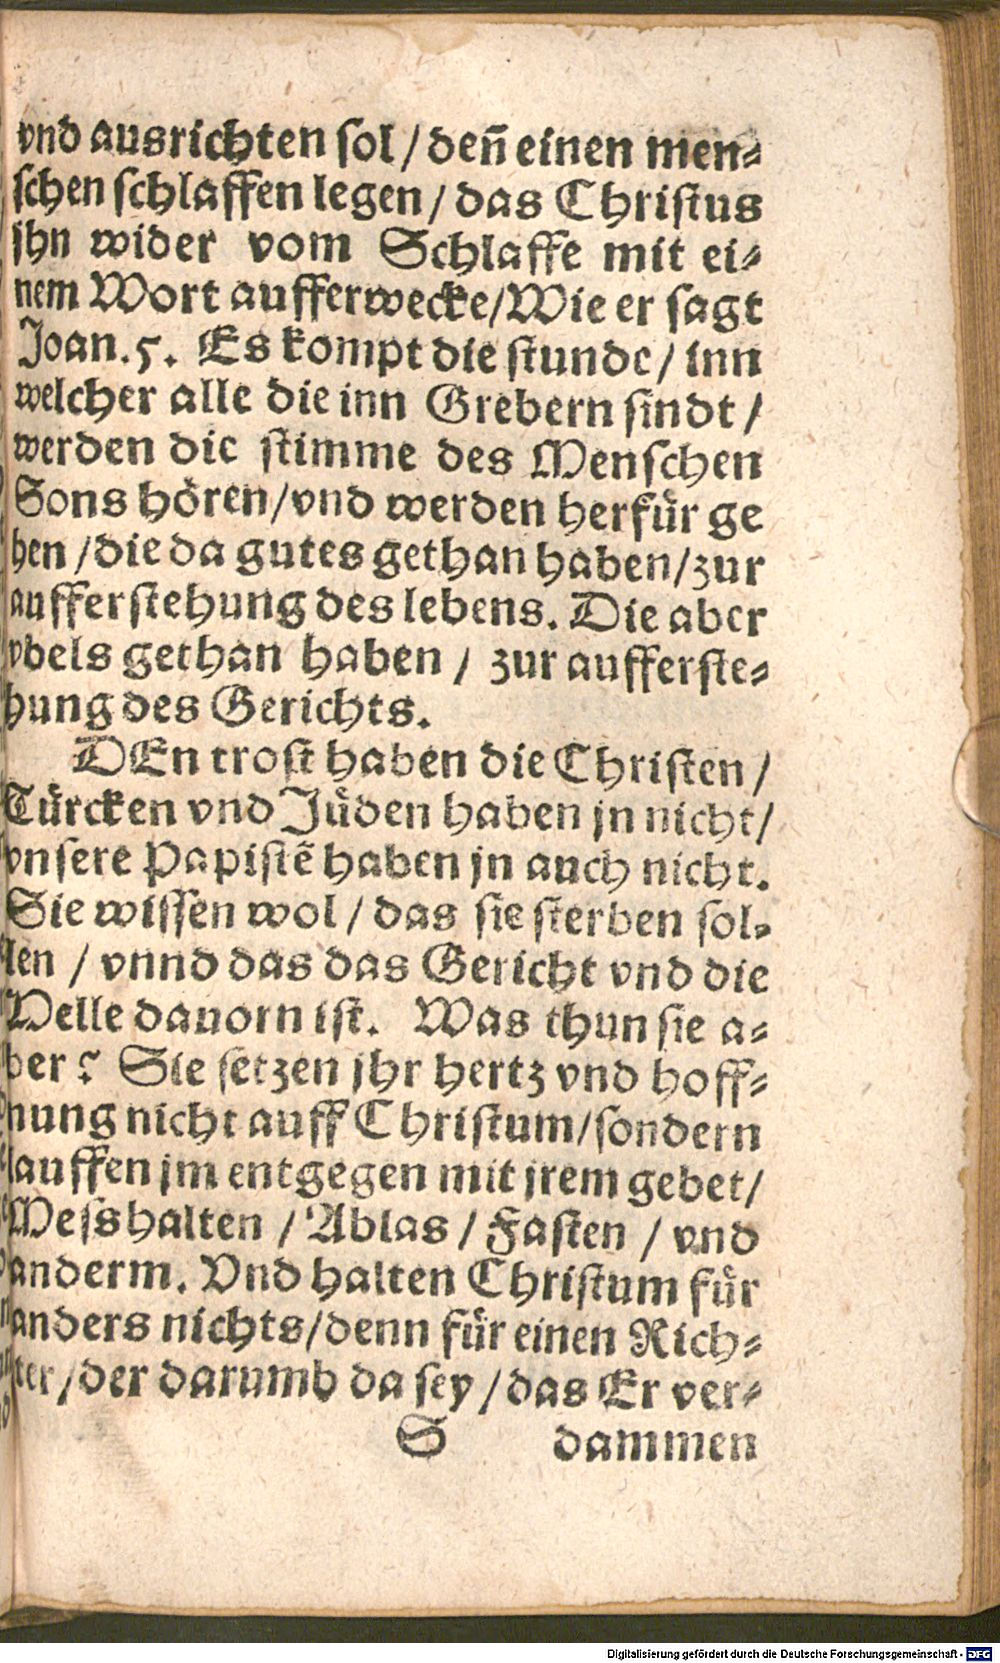 vnd ausrichten sol / deñ einen men⸗
schen schlaffen legen / das Christus
jhn wider vom Schlaffe mit ei⸗
nem Wort aufferwecke/Wie er sagt
Joan. 5. Es kompt die stunde / inn
welcher alle die inn Grebern sindt /
werden die stimme des Menschen
Sons hören/vnd werden herfür ge
hen /die da gutes gethan haben/zur
aufferstehung des lebens. Die aber
vbels gethan haben / zur aufferste⸗
hung des Gerichts.
DEn trost haben die Christen /
Türcken vnd Jüden haben jn nicht/
vnsere Papistẽ haben jn auch nicht.
Sie wissen wol / das sie sterben sol⸗
len / vnnd das das Gericht vnd die
Helle dauorn ist. Was thun sie a⸗
ber? Sie setzen jhr hertz vnd hoff⸗
nung nicht auff Christum/sondern
lauffen jm entgegen mit jrem gebet/
Messhalten / Ablas / Fasten / vnd
anderm. Vnd halten Christum für
anders nichts/denn für einen Rich⸗
ter /der darumb da sey / das Er ver⸗
S dammen
Digitalisierung gefördert durch die Deutsche Forschungsgemeinschaft - DFG